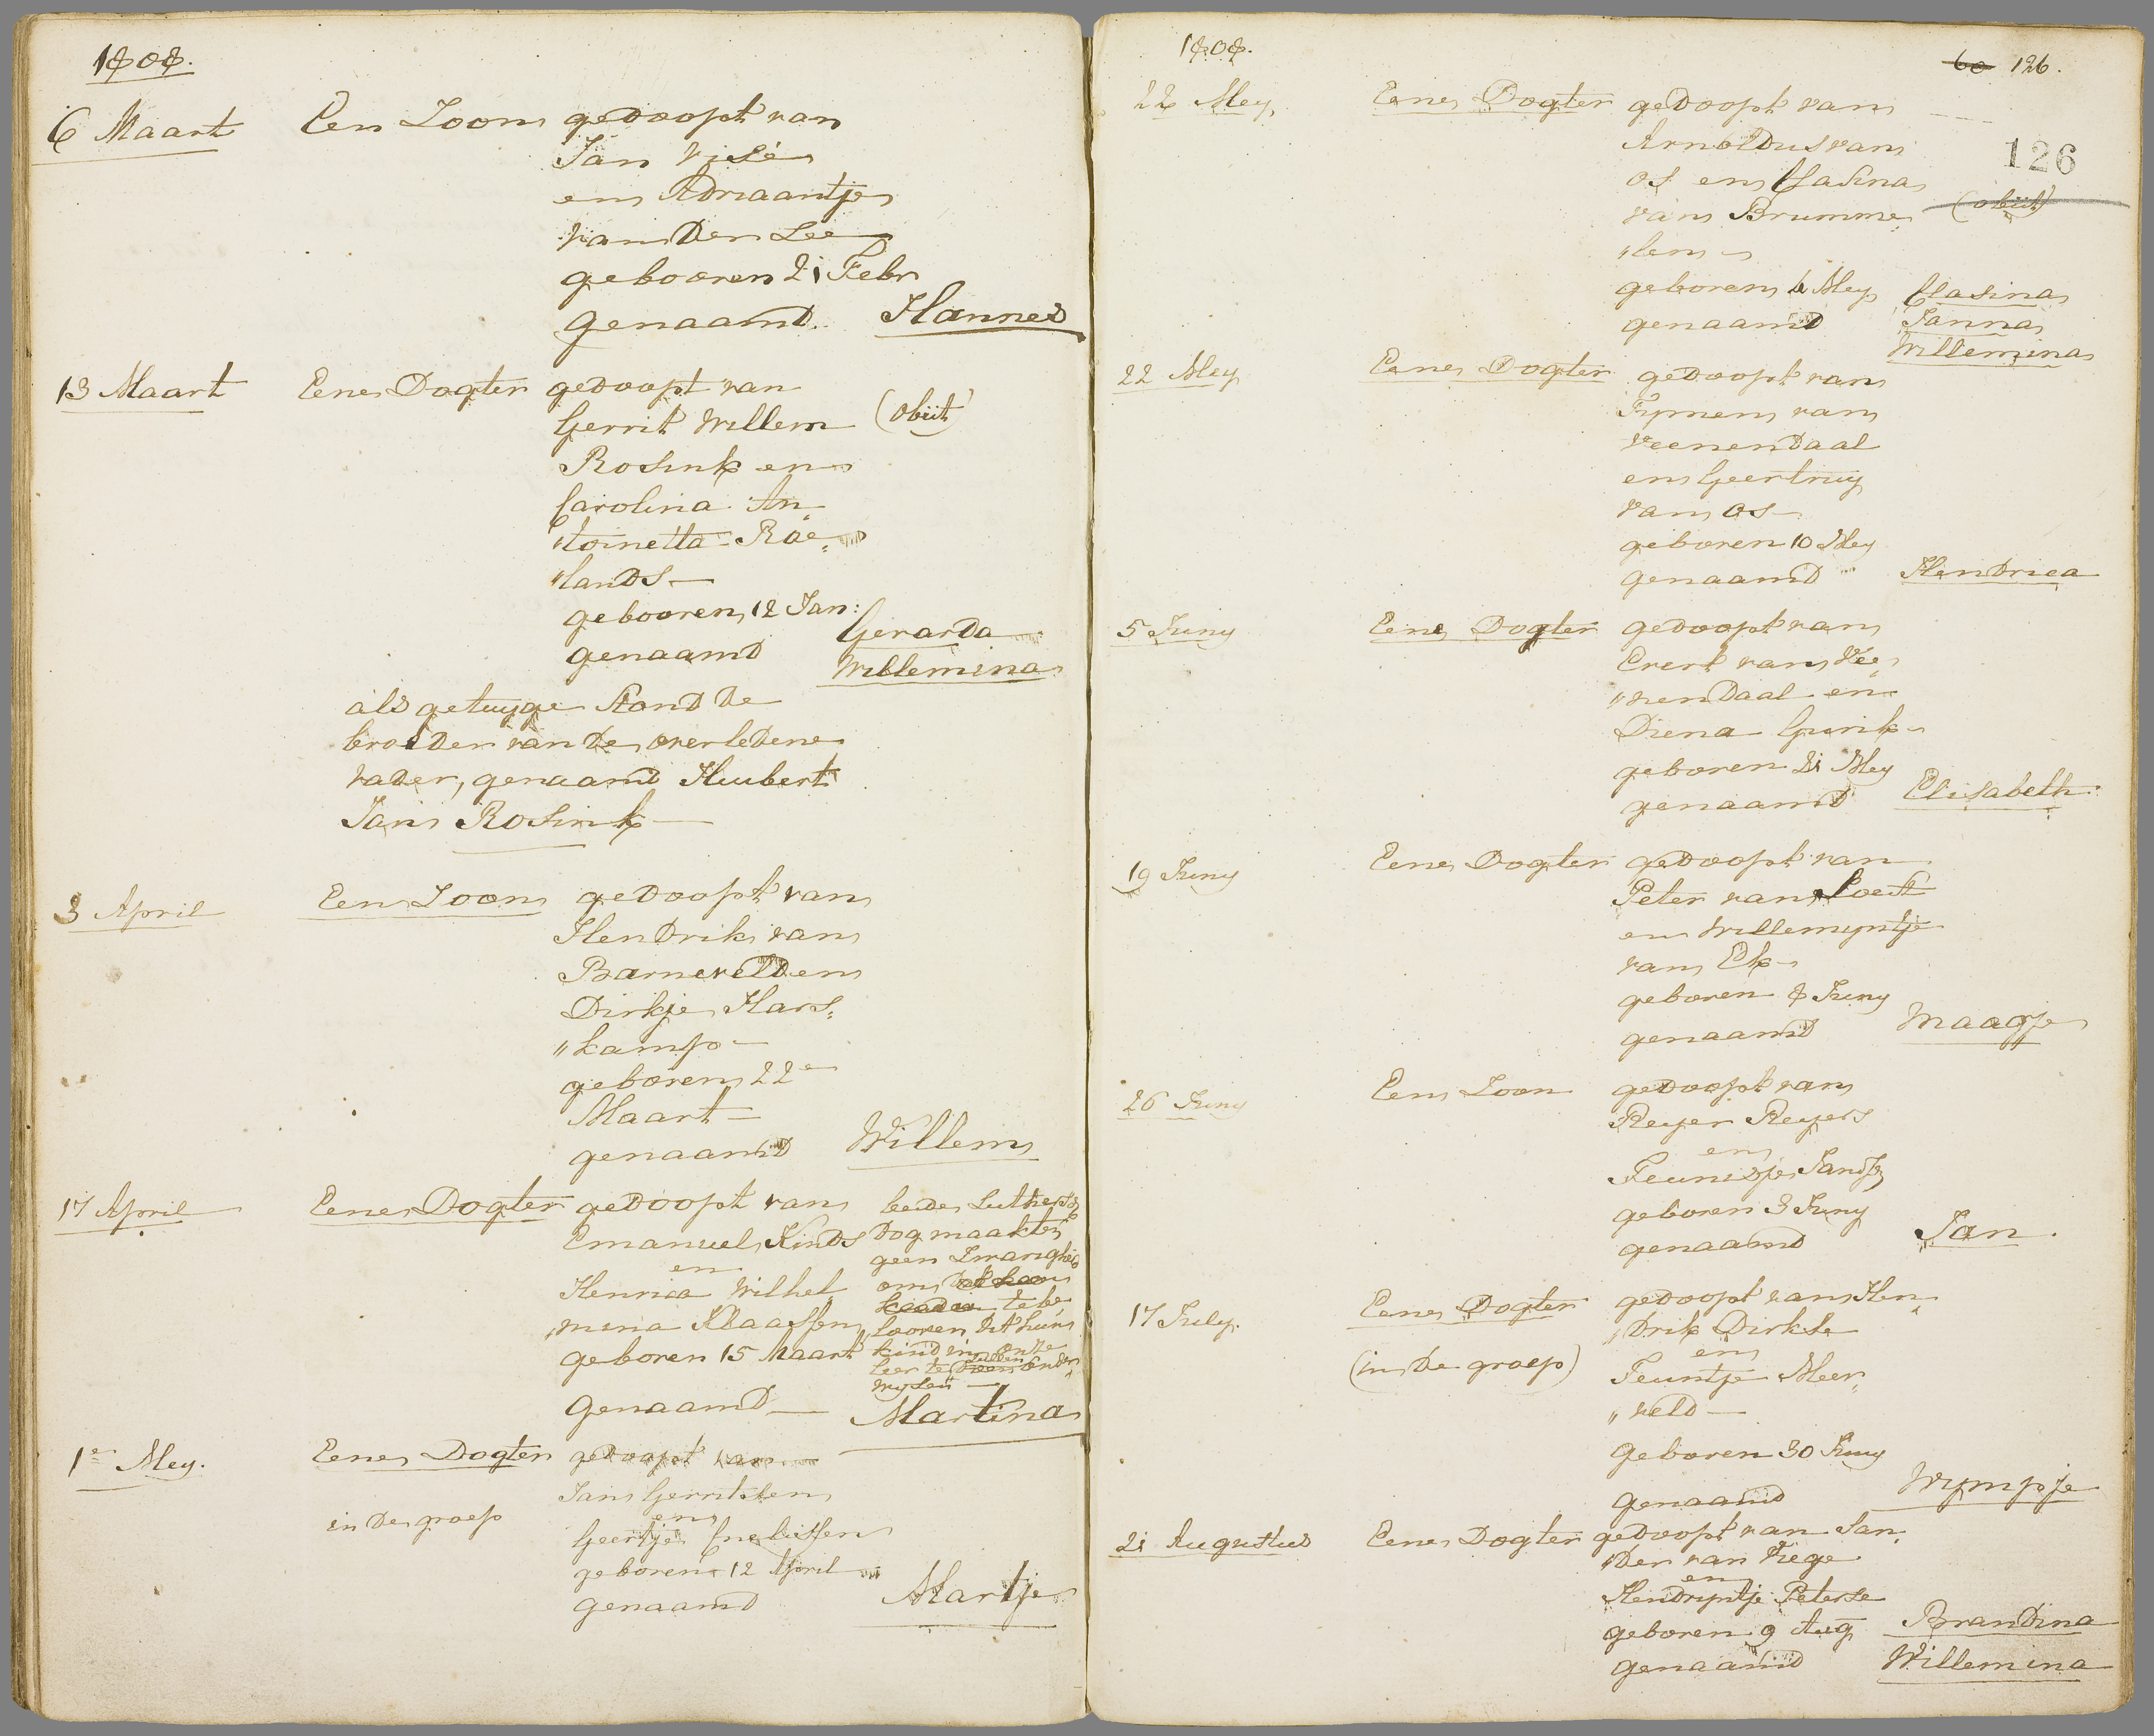 1808.
6 Maart Een Zoon gedoopt van
Jan Visé
en Adriaantje
van der Lee
gebooren 21 Febr
genaamd. Hannes
13 Maart Eene Dogter gedoopt van
Gerrit Willem (obiit)
Rosink en
Carolina An
"toinetta Roe„
"lands —
gebooren 12 Jan:
genaamd Gerarda
Willemina
als getuyge stond de
broeder van de overledene
vader, genaamd Huubert
Jan Rosink —
3 April Een Zoon gedoopt van
Hendrik van
Barneveld en
Dirkje Hars„
"kamp —
geboren 22e
Maart —
genaamd Willem
17 April Eene Dogter gedoopt van
Emanuel Kinds
en
Henrica Wilhel„
„mina Klaassen
geboren 15 Maart
beide Luthersch
Dog maakten
geen zwarigheid
om
te be„
„looven, dit hun
kind in onze
leer te zullen onder„
wysen —
Genaamd — Martina
1e Mey. Eene Dogter gedoopt van
in de groep
Jan Gerritsen
en
Geertje Cnelissen
geboren 12 April
genaamd Martje
1808.
60 126.
126
22 Mey Eene Dogter gedoopt van
Arnoldus van
Os en Clasina
van Brumme„ (obiit)
"len —
geboren Mey Clasina
genaamd Janna
Willemina
22 Mey Eene Dogter gedoopt van
Tymen van
Veenendaal
en Geertruy
van Os —
geboren 10 Mey
genaamd Hendrica
5 Juny Eene Dogter gedoopt van
Evert van Vee„
"nendaal en
Diena Gurik
geboren 21 Mey
genaamd Elisabeth
19 Juny Eene Dogter gedoopt van
Peter van Soest
en Willemyntje
van Ek —
geboren 8 Juny
genaamd Maagje
26 Juny Een Zoon gedoopt van
Reyer Reyers
en
Teunisje Jansz
geboren 3 Juny
genaamd Jan.
17 July. Eene Dogter gedoopt van Hen„
(in de groep) „drik Dirkse
en
Teuntje Meer„
„veld —
geboren 30 Juny
genaamd Wympje
21 Augustus Eene Dogter gedoopt van San„
"der van Viege
en
Hendryntje Peterse
geboren 9 Aug Brandina
genaamd Willemina